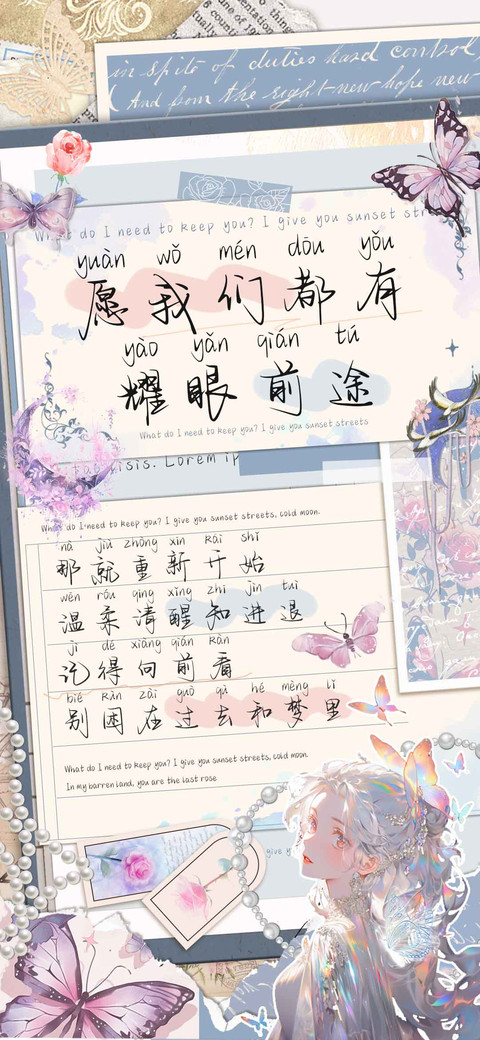 in spite of duties hard control,
And from the right-new hope new
What do I need to keep you? I give you sunset str
yuàn wǒ mén dōu yǒu
愿我们都有
yào yǎn qián tú
耀眼前途
What do I need to keep you? I give you sunset streets
Lorem ip
What do I need to keep you? I give you sunset streets, cold moon.
nà jiù zhòng xīn kāi shǐ
那就重新开始
wēn róu qīng xǐng zhī jìn tuì
温柔清醒知进退
jì dé xiàng qián kàn
记得向前看
bié kùn zài guò qù hé mèng lǐ
别困在过去和梦里
What do I need to keep you? I give you sunset streets, cold moon.
In my barren land, you are the last rose
give yo